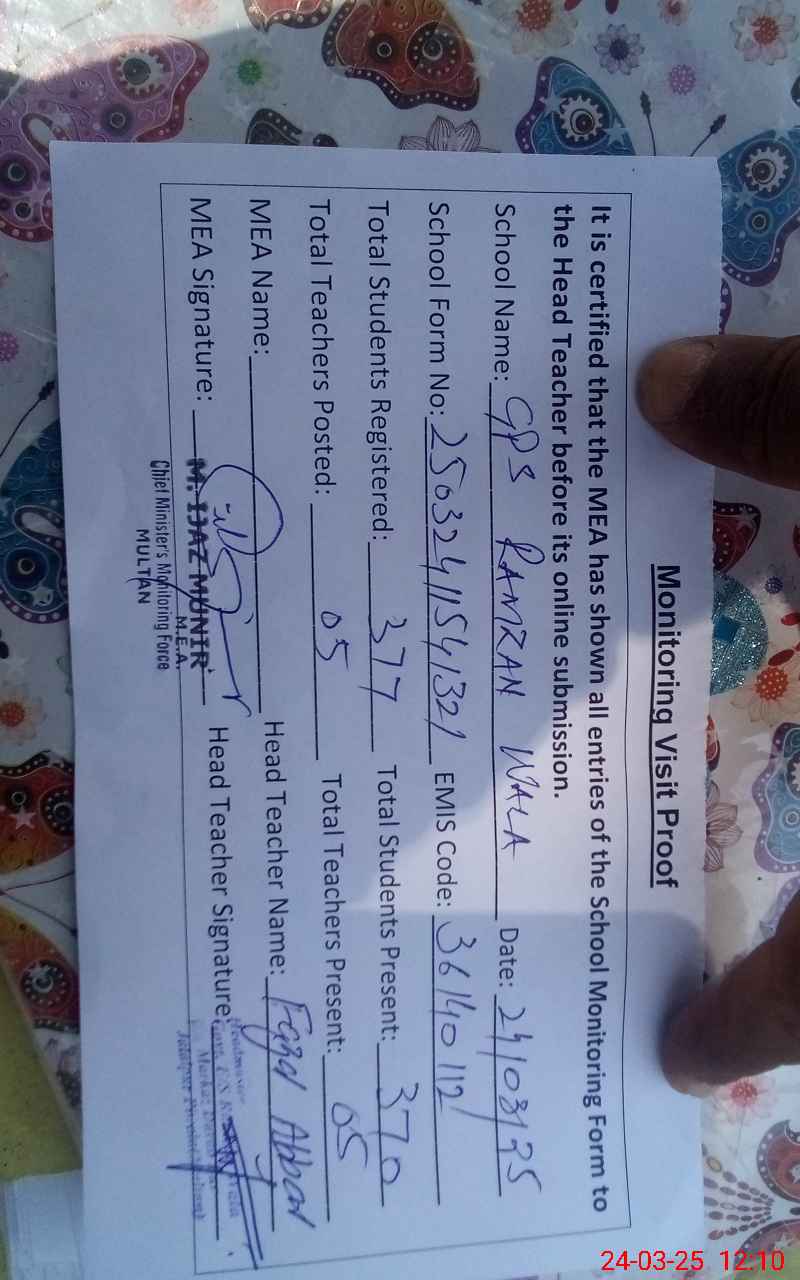 Monitoring Visit Proof
It is certified that the MEA has shown all entries of the School Monitoring Form to
the Head Teacher before its online submission.
School Name: GPS RAMZAN WALA Date: 24/03/25
School Form No: 25032411541321 EMIS Code: 36140112
Total Students Registered: 377 Total Students Present: 370
Total Teachers Posted: 05 Total Teachers Present: 05
MEA Name: Head Teacher Name: Fazal Abbas
MEA Signature: M. IJAZ MUNIR Head Teacher Signature:
M.E.A.
Chief Minister's Monitoring Force
MULTAN
Headmaster
24-03-25 12:10